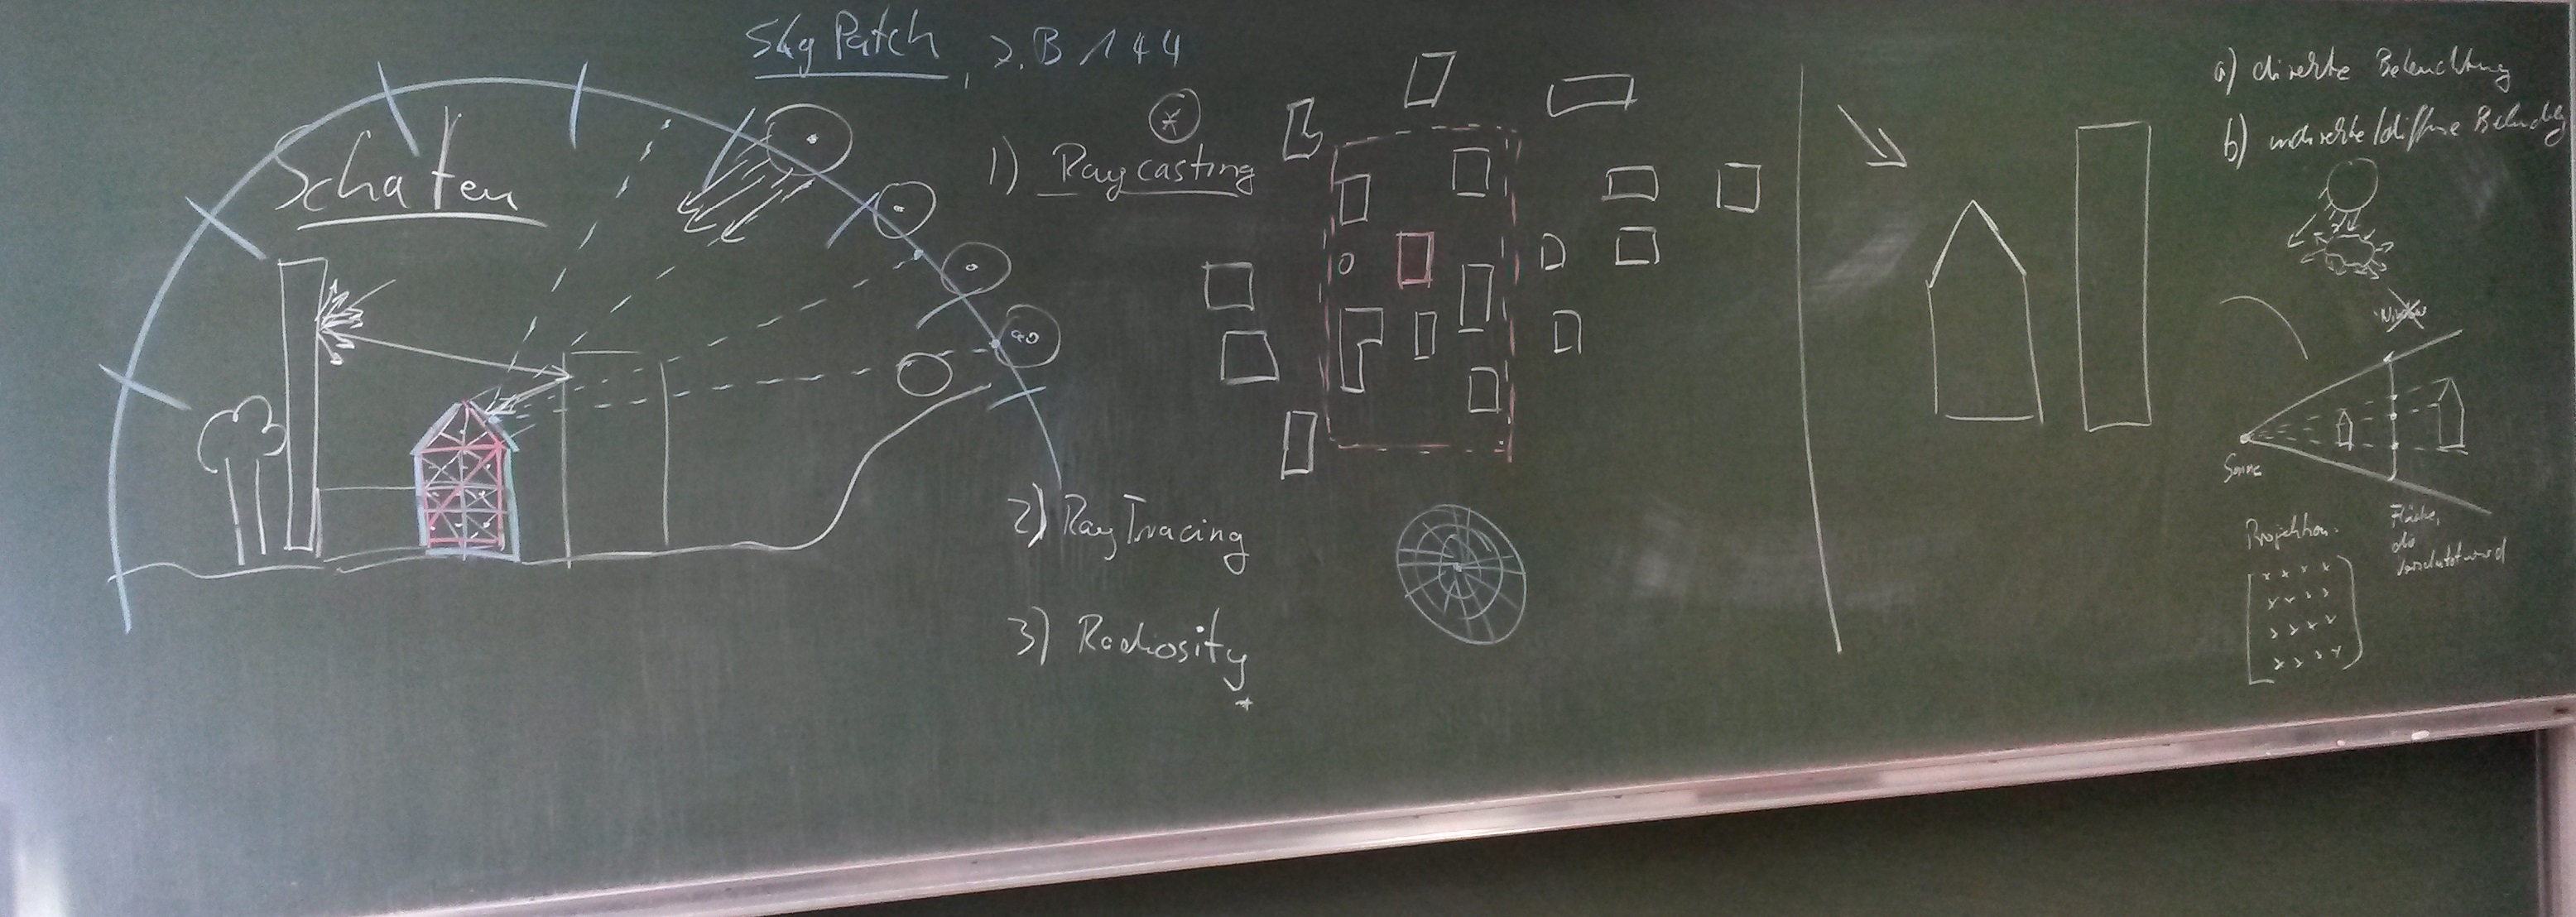 Sky Patch, z.B 144
Schatten
1) Raycasting
2) RayTracing
3) Radiosity
a) direkte Beleuchtung
b) indirekte/diffuse Beleuchtg
Window
Sonne
Projektion
Fläche,
die
verschattet wird
x x x x
x x x x
x x x x
x x x x